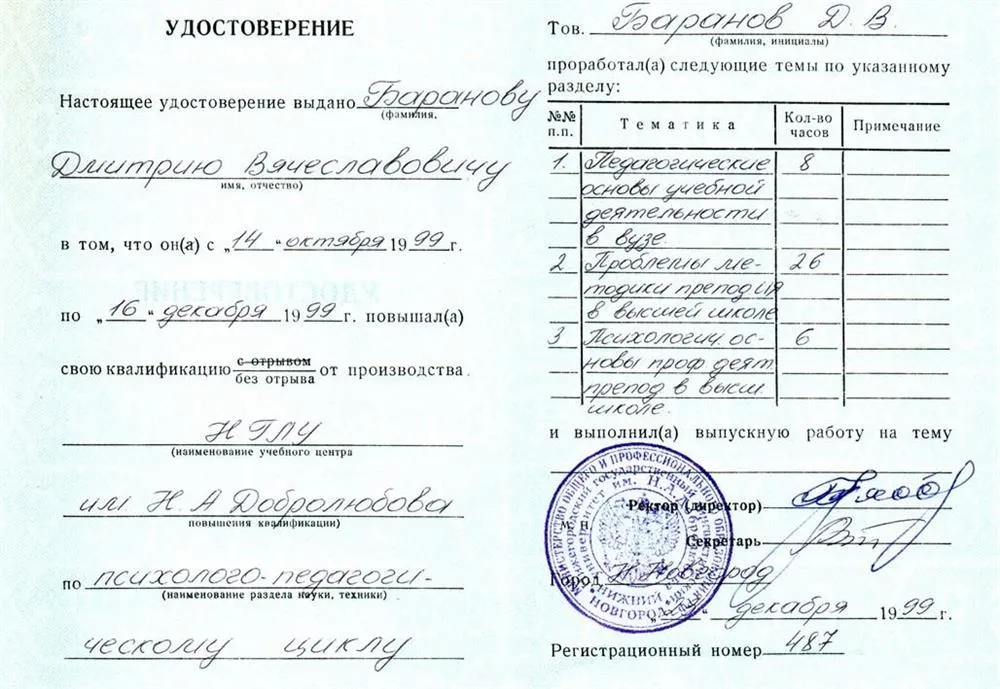 УДОСТОВЕРЕНИЕ
Настоящее удостоверение выдано Баранову
(фамилия,
Дмитрию Вячеславовичу
имя, отчество)
в том, что он(а) с „14“ октября 1999 г.
по „16“ декабря 1999 г. повышал(а)
с отрывом
свою квалификацию от производства.
без отрыва
НГЛУ
(наименование учебного центра
им. Н.А Добролюбова
повышения квалификации)
по психолого-педагоги-
(наименование раздела науки, техники)
ческому циклу
Тов. Баранов Д. В.
(фамилия, инициалы)
проработал(а) следующие темы по указанному
разделу:
№№ п.п. Тематика Кол-во часов Примечание
1. Педагогические 8
основы учебной
деятельности
в вузе.
2 Проблемы ме- 26
тодики препод ия
в высшей школе
3 Психологич. ос- 6
новы проф деят
препод в высш.
школе.
и выполнил(а) выпускную работу на тему
Ректор (директор)
М. П.
Секретарь
Город Н.Новгород
декабря 1999 г.
Регистрационный номер 487